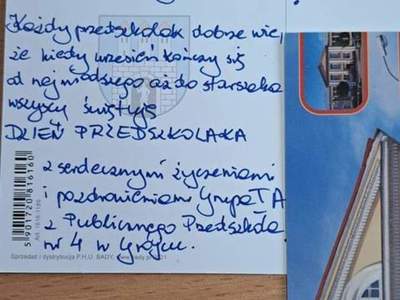 Każdy przedszkolak dobrze wie,
że kiedy wrzesień kończy się
od najmłodszego aż do starszaka
wszyscy świętują
DZIEŃ PRZEDSZKOLAKA
z serdecznymi życzeniami
i pozdrowieniami Grupa TA
z Publicznego Przedszkola
nr 4 w Grójcu.
5901720816160
Sprzedaż / dystrybucja P.H.U. BADY,